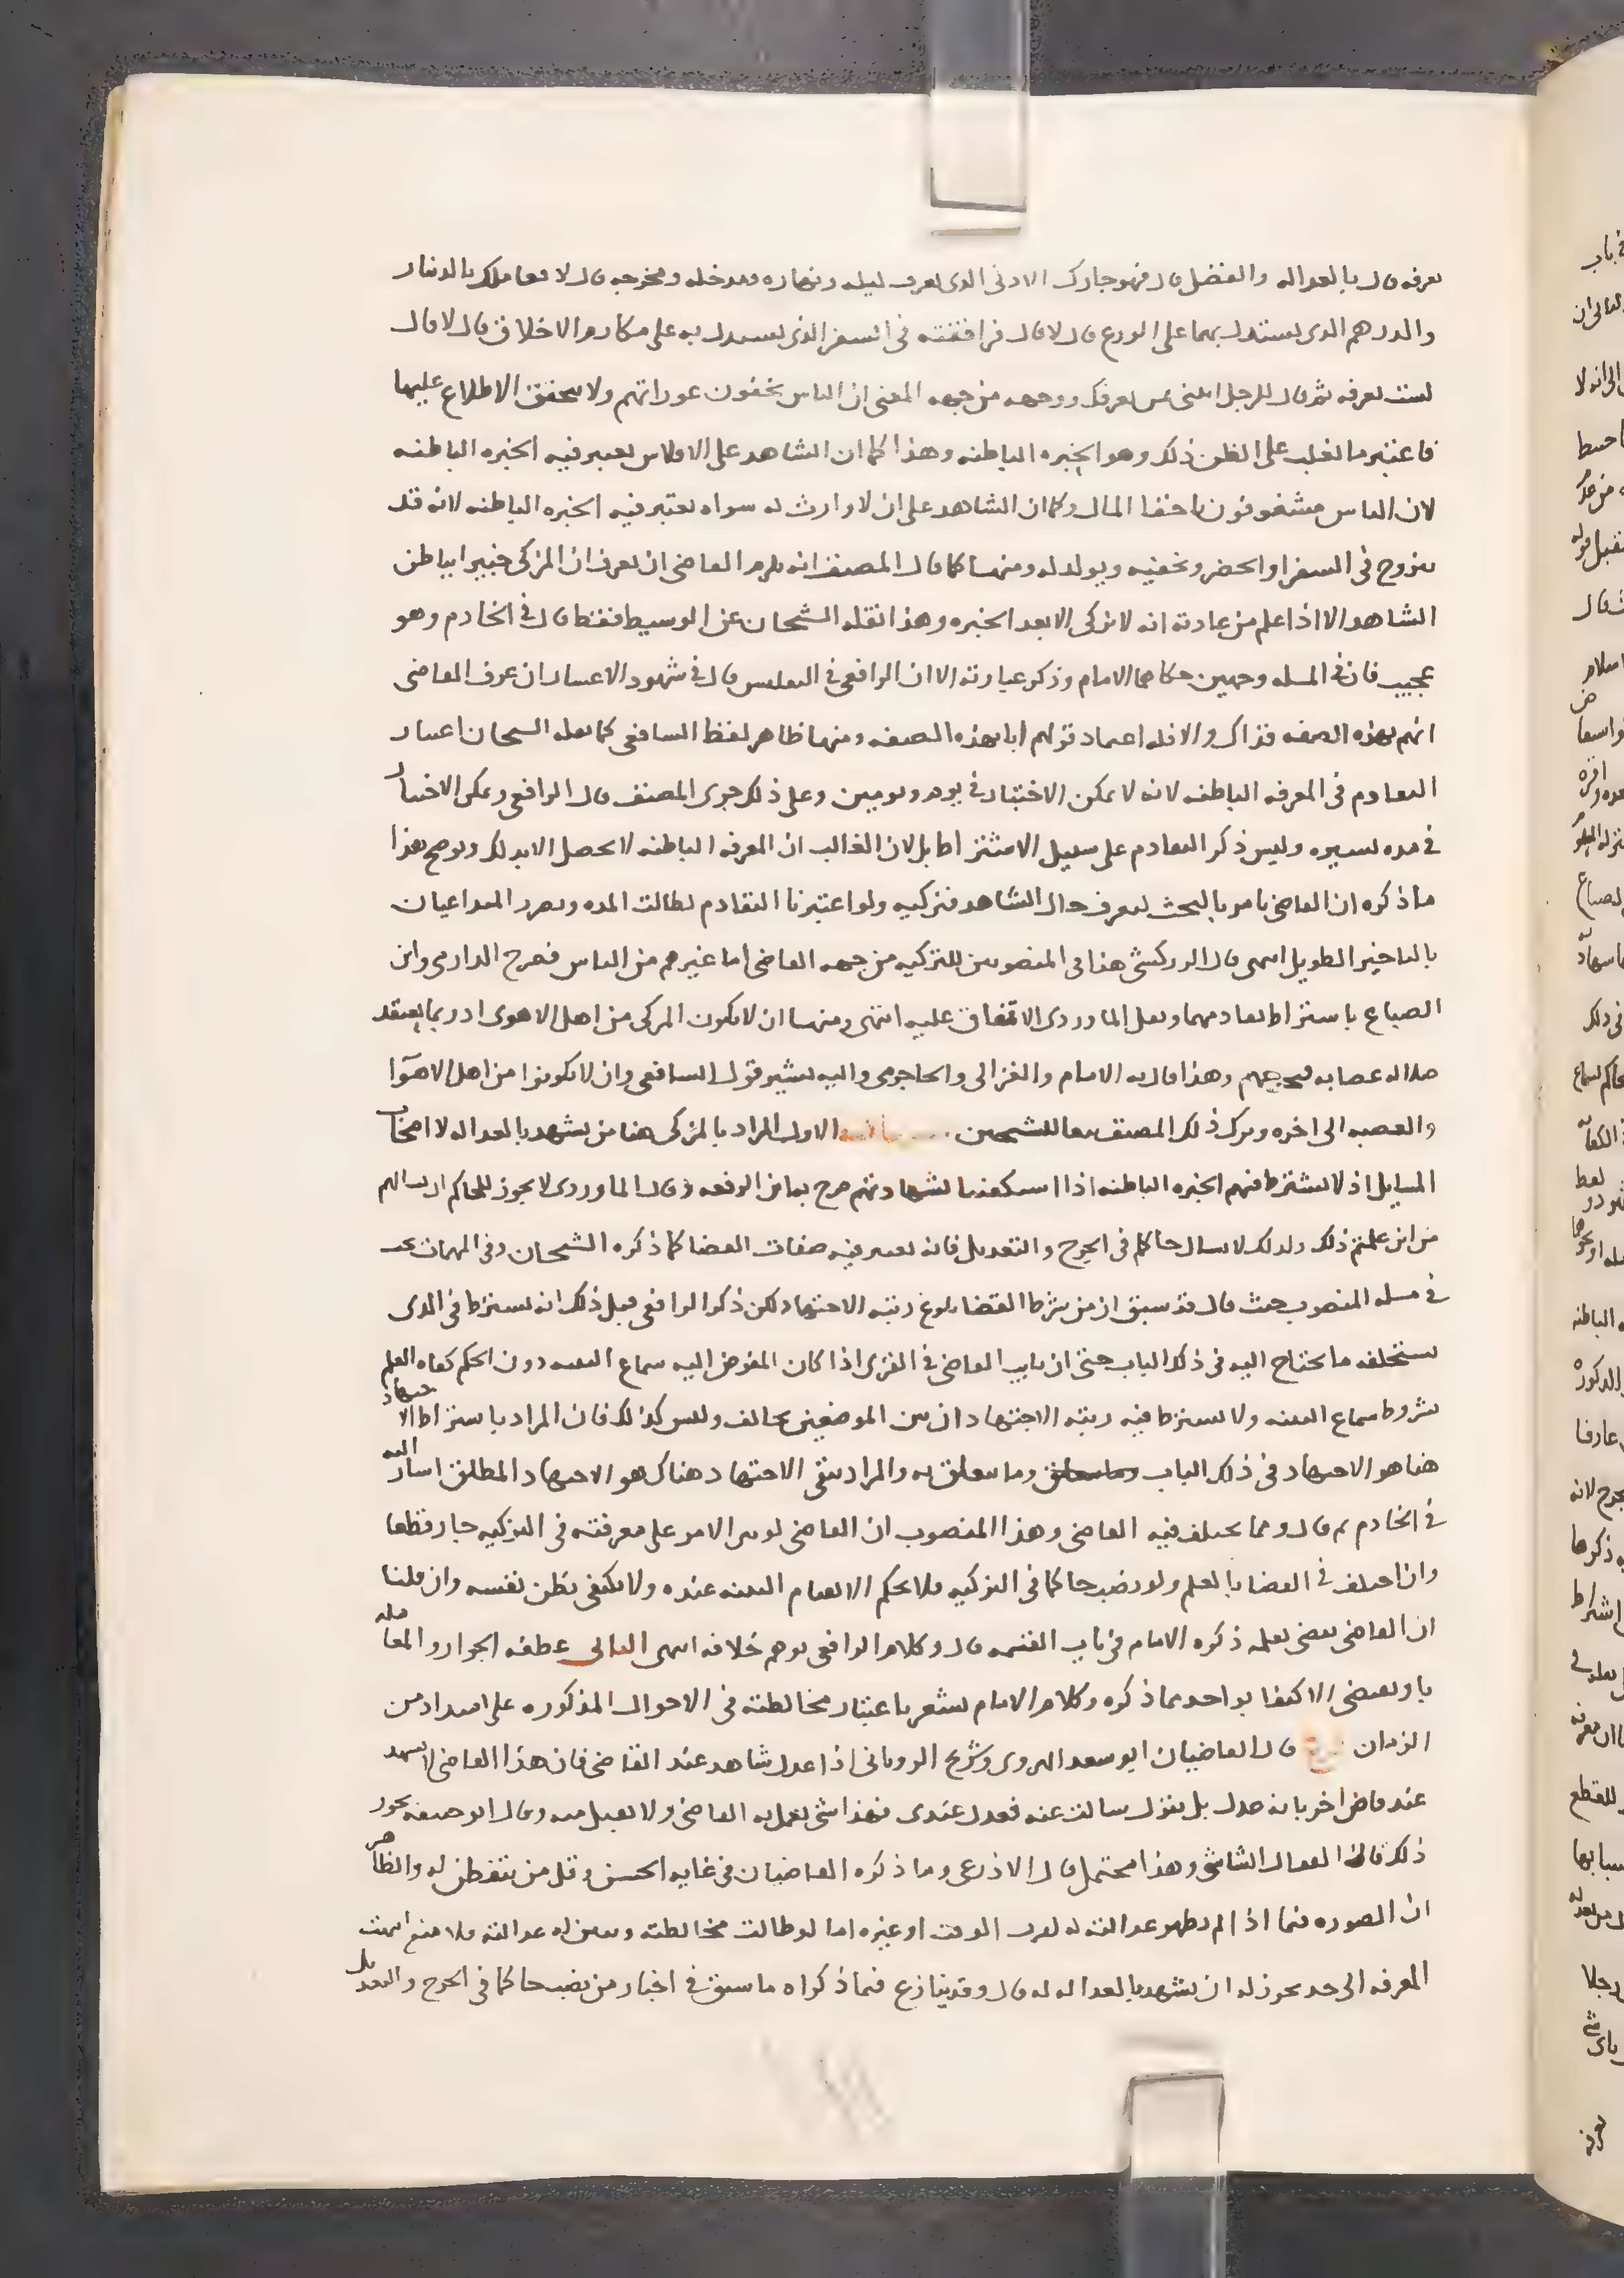 تعرفه قال بالعداله والفضل قال فهو جارك الادنى الذى تعرف ليله ونهاره ومدخله ومخرجه قال لا فعاملك بالدينار
والدرهم الذى يستدل بهما على الورع قال لا قال فرافقته فى السفر الذى يستدل به على مكارم الاخلاق قال لا قال
لست تعرفه ثم قال للرجل ايتنى بمن يعرفك ووجهه من جهه المعنى ان الناس يخفون عوراتهم ولا يتحقق الاطلاع عليها
فاعتبر ما يغلب على الظن ذلك وهو الخبره الباطنه وهذا كما ان الشاهد على الافلاس يعتبر فيه الخبره الباطنه
لان الناس مشغوفون باخفا المال وكما ان الشاهد على ان لا وارث له سواه يعتبر فيه الخبره الباطنه لانه قد
يتزوج فى السفر او الحضر ويخفيه ويولد له ومنها كما قال المصنف انه يلزم القاضى ان يعرف ان المزكى خبير بباطن
الشاهد الا اذا علم من عادته انه لا يزكى الا بعد الخبره وهذا نقله الشيخان عن الوسيط فقط قال فى الخادم وهو
عجيب فان فى المسله وجهين حكاهما الامام وذكر عبارته الا ان الرافعى فى التفليس قال فى شهود الاعسار ان عرف القاضى
انهم بهذه الصفه فذاك والا فله اعتماد قولهم انا بهذه الصفه ومنها ظاهر لفظ الشافعى كما نقله الشيخان اعتبار
التقادم فى المعرفه الباطنه لانه لا يمكن الاختبار فى يوم ويومين وعلى ذلك جرى المصنف قال الرافعى ويمكن الاختبار
فى مده يسيره وليس ذكر التقادم على سبيل الاشتراط بل لان الغالب ان المعرفه الباطنه لا تحصل الا بذلك ويوضح هذا
ما ذكره ان القاضى يامر بالبحث ليعرف حال الشاهد فيزكيه ولو اعتبرنا التقادم لطالت المده وتضرر المتداعيان
بالتاخير الطويل انتهى قال الزركشى هذا فى المنصوبين للتزكيه من جهه القاضى اما غيرهم من الناس فصرح الدارمى وابن
الصباغ باشتراط تقادمهما ونقل الماوردى الاتفاق عليه انتهى ومنها ان لا يكون المزكى من اهل الاهوى اذ ربما يعتقد
ضلاله عصابه فيجرحهم وهذا قال به الامام والغزالى والجاجرمى واليه يشير قول الشافعى وان لا يكونوا من اهل الاهوآ
والعصبه الى اخره وترك ذلك المصنف تبعا للشيخين الاول المراد بالمزكى هنا من يشهد بالعداله لا اصحاب
المسايل اذ لا يشترط فيهم الخبره الباطنه اذا اكتفينا بشهادتهم صرح به ابن الرفعه وقال الماوردى لا يجوز للحاكم ان يسالهم
من اين علمتم ذلك ولذلك لا يسال حاكما فى الجرح والتعديل فانه يعتبر فيه صفات القضا كما ذكره الشيخان وفى المهمات بحث
فى مسله المنصوب حيث قال قد سبق ان من شرط القضا بلوغ رتبه الاجتهاد لكن ذكر الرافعى قبل ذلك انه يشترط فى الذى
يستخلفه ما يحتاج اليه فى ذلك الباب حتى ان نايب القاضى فى القرى اذا كان المفوض اليه سماع البينه دون الحكم كفاه العلم
بشروط سماع البينه ولا يشترط فيه رتبه الاجتهاد ان بين الموضعين تخالف وليس كذلك فان المراد باشتراط الاجتهاد
هنا هو الاجتهاد فى ذلك الباب وما يتعلق به والمراد بنفى الاجتهاد هناك هو الاجتهاد المطلق اشار اليه
فى الخادم ثم قال ومما يختلف فيه القاضى وهذا المنصوب ان القاضى لو بنى الامر على معرفته فى التزكيه جاز قطعا
وان اختلف فى القضا بالعلم ولو نصب حاكما فى التزكيه فلا يحكم الا بقيام البينه عنده ولا يكتفى بظن نفسه وان قلنا
ان القاضى يقضى بعلمه ذكره الامام فى باب القسمه قال وكلام الرافعى يوهم خلافه انتهى الثانى عطفه الجوار والمعامله
باو يقتضى الاكتفا بواحد مما ذكره وكلام الامام يشعر باعتبار مخالطته فى الاحوال المذكوره على امتداد من
الزمان فرع قال القاضيان ابو سعد الهروى وشريح الرويانى اذا عدل شاهد عند القاضى فان هذا القاضى لا يشهد
عند قاض اخر بانه عدل بل يقول سالت عنه فعدل عندى فهذا شى يعمل به القاضى ولا يقبل منه وقال ابو حنيفه يجوز
ذلك قال القفال الشاشى وهذا محتمل قال الاذرعى وما ذكره القاضيان فى غايه الحسن وقل من يتفطن له والظاهر
ان الصوره فيما اذا لم تظهر عدالته له بعرف الوقت او غيره اما لو طالت مخالطته وتبين له عدالته فلا منع اثبت
المعرفه الى حد يجوز له ان يشهد بالعداله له قال وقد ينازع فيما ذكراه ما سبق فى اخبار من نصب حاكما فى الجرح والتعديل